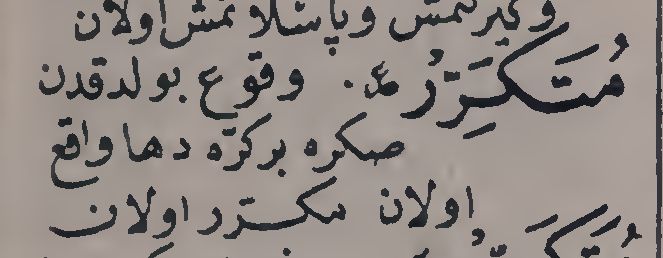 وكيرلتمش وپاسلانمش اولان
مُتَكَرِّرُ ع. وقوع بولدقدن
صكره بركرّه دها واقع
اولان مكرّر اولان